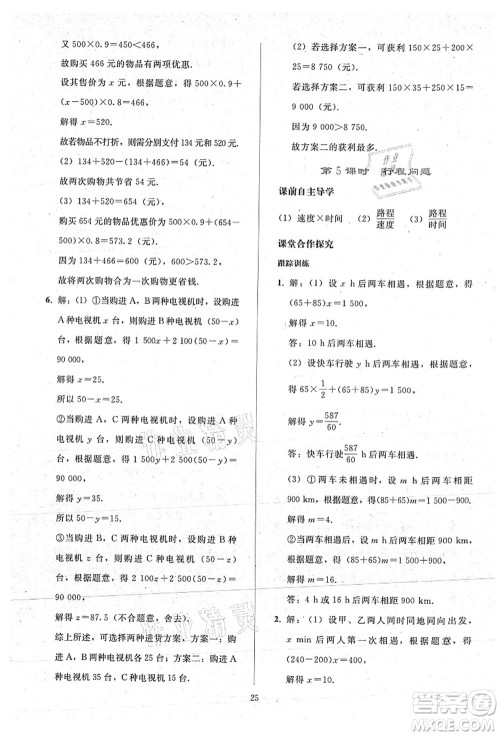 又 500×0.9=450<466,
故购买 466 元的物品有两项优惠.
设其售价为 x 元,根据题意,得 500×0.9+
(x-500)×0.8=466.
解得 x=520.
故若物品不打折,则分别支付 134 元,520 元.
(2) 134+520-134-466=54(元).
故两次购物共节省 54 元.
(3) 134+520=654(元).
故购买 654 元的物品优惠价为 500×0.9+
(654-500)×0.8=573.2(元).
因为 134+466=600(元),600>573.2,
故将两次购物合为一次购买更省钱.
6. 解:(1) ①当购进 A、B 两种电视机时,设购进
A 种电视机 x 台,则购进 B 种电视机(50-x)
台,根据题意,得 1 500x+2 100(50-x)=
90 000.
解得 x=25.
所以 50-x=25.
②当购进 A、C 两种电视机时,设购进 A 种电视
机 y 台,根据题意,得 1 500y+2 500(50-y)=
90 000.
解得 y=35.
所以 50-y=15.
③当购进 B、C 两种电视机时,设购进 B 种电视
机 z 台,根据题意,得 2 100z+2 500(50-z)=
90 000.
解得 z=87.5(不合题意,舍去).
综上所述,可选择两种进货方案:方案一:购进
A、B 两种电视机各 25 台;方案二:购进 A 种电
视机 35 台,购进 C 种电视机 15 台.
(2) 若选择方案一,可获利 150×25+200×
25=8 750(元).
若选择方案二,可获利 150×35+250×15=
9 000(元).
因为 9 000>8 750,
故方案二的获利最多.
第 5 课时 行程问题
课前自主导学
(1) 速度×时间 (2) 路程/速度 (3) 路程/时间
课堂合作探究
跟踪训练
1. 解:(1) 设 x h 后两车相遇,根据题意,得
(65+85)x=1 500,
解得 x=10.
答:10 h 后两车相遇.
(2) 设快车行驶 y h 后两车相遇,根据题意,得
65×1/2+(65+85)y=1 500,
解得 y=587/60.
答:快车行驶 587/60 h 后两车相遇.
(3) ①两车未相遇时,设 m h 后两车相距
900 km,根据题意,得(85+65)m=1 500-900,
解得 m=4.
②当两车相遇后,设 m h 后两车相距 900 km,
根据题意,得(85+65)m=1 500+900,
解得 m=16.
答:4 h 或 16 h 后两车相距 900 km.
2. 解:(1) 设甲、乙两人同时同地同向出发,
x min 后两人第一次相遇,根据题意,得
(240-200)x=400,
解得 x=10.
25
作业精灵
作业精灵